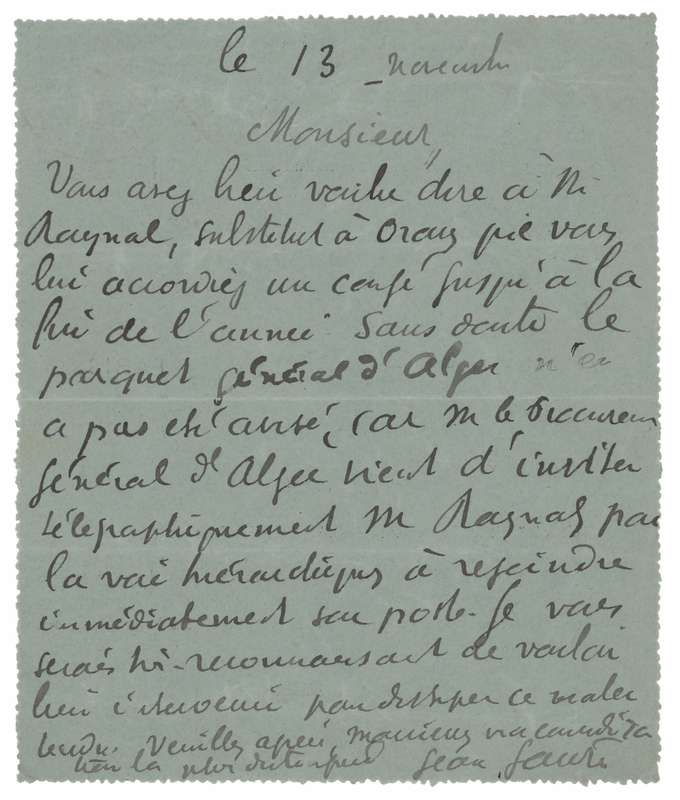 le 13 novembre
Monsieur,
Vous avez bien voulu dire à M.
Raynal, substitut à Oran que vous
lui accordiez un congé jusqu'à la
fin de l'année. Sans doute le
parquet général d'Alger n'en
a pas été avisé, car M. le Procureur
général d'Alger vient d'inviter
télégraphiquement M Raynal par
la voie hiérarchique à rejoindre
immédiatement son poste. Je vous
serais très-reconnaissant de vouloir
bien intervenir pour dissiper ce malen
tendu. Veuillez agréer, monsieur, ma considéra
tion la plus distinguée Jean Jaurès